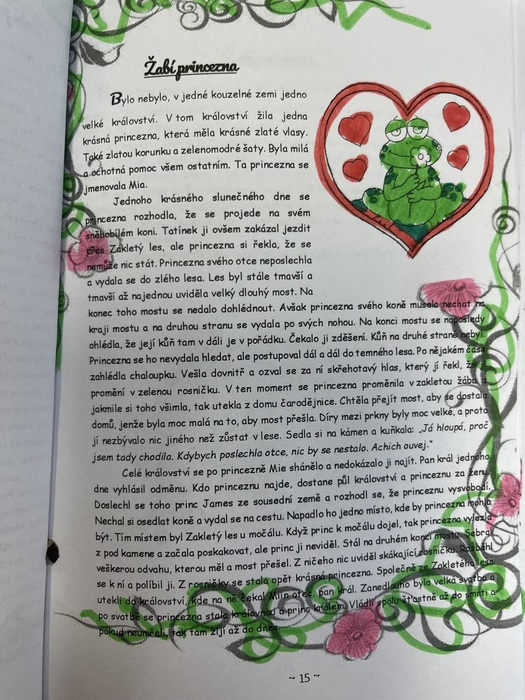 Žabí princezna
Bylo nebylo, v jedné kouzelné zemi jedno
velké království. V tom království žila jedna
krásná princezna, která měla krásné zlaté vlasy.
Také zlatou korunku a zelenomodré šaty. Byla milá
a ochotná pomoc všem ostatním. Ta princezna se
jmenovala Mia.
Jednoho krásného slunečného dne se
princezna rozhodla, že se projede na svém
sněhobílém koni. Tatínek jí ovšem zakázal jezdit
přes Zakletý les, ale princezna si řekla, že se
nemůže nic stát. Princezna svého otce neposlechla
a vydala se do zlého lesa. Les byl stále tmavší a
tmavší až najednou uviděla velký dlouhý most. Na
konec toho mostu se nedalo dohlédnout. Avšak princezna svého koně musela nechat na
kraji mostu a na druhou stranu se vydala po svých nohou. Na konci mostu se naposledy
ohlédla, že její kůň tam v dáli je v pořádku. Čekalo ji zděšení. Kůň na druhé straně nebyl.
Princezna se ho nevydala hledat, ale postupoval dál a dál do temného lesa. Po nějakém čase
zahlédla chaloupku. Vešla dovnitř a ozval se za ní skřehotavý hlas, který jí řekl, že ji
promění v zelenou rosničku. V ten moment se princezna proměnila v zakletou žábu a
jakmile si toho všimla, tak utekla z domu čarodějnice. Chtěla přejít most, aby se dostala
domů, jenže byla moc malá na to, aby most přešla. Díry mezi prkny byly moc velké, a proto
jí nezbývalo nic jiného než zůstat v lese. Sedla si na kámen a kuňkala: „Já hloupá, proč
jsem tady chodila. Kdybych poslechla otce, nic by se nestalo. Achich ouvej."
Celé království se po princezně Mie shánělo a nedokázalo ji najít. Pan král jednoho
dne vyhlásil odměnu. Kdo princeznu najde, dostane půl království a princeznu za ženu.
Doslechl se toho princ James ze sousední země a rozhodl se, že princeznu vysvobodí.
Nechal si osedlat koně a vydal se na cestu. Napadlo ho jedno místo, kde by princezna mohla
být. Tím místem byl Zakletý les u močálu. Když princ k močálu dojel, tak princezna vylezla
z pod kamene a začala poskakovat, ale princ ji neviděl. Stál na druhém konci mostu. Sebral
veškerou odvahu, kterou měl a most přešel. Z ničeho nic uviděl skákající rosničku. Rozběhl
se k ní a políbil ji. Z rosničky se stala opět krásná princezna. Společně ze Zakletého lesa
utekli do království, kde na ně čekal Miin otec, pan král. Zanedlouho byla velká svatba a
po svatbě se princezna stala královnou a princ králem. Vládli spolu šťastně až do smrti a
pokud neumřeli, tak tam žijí až do dnes.
~ 15 ~